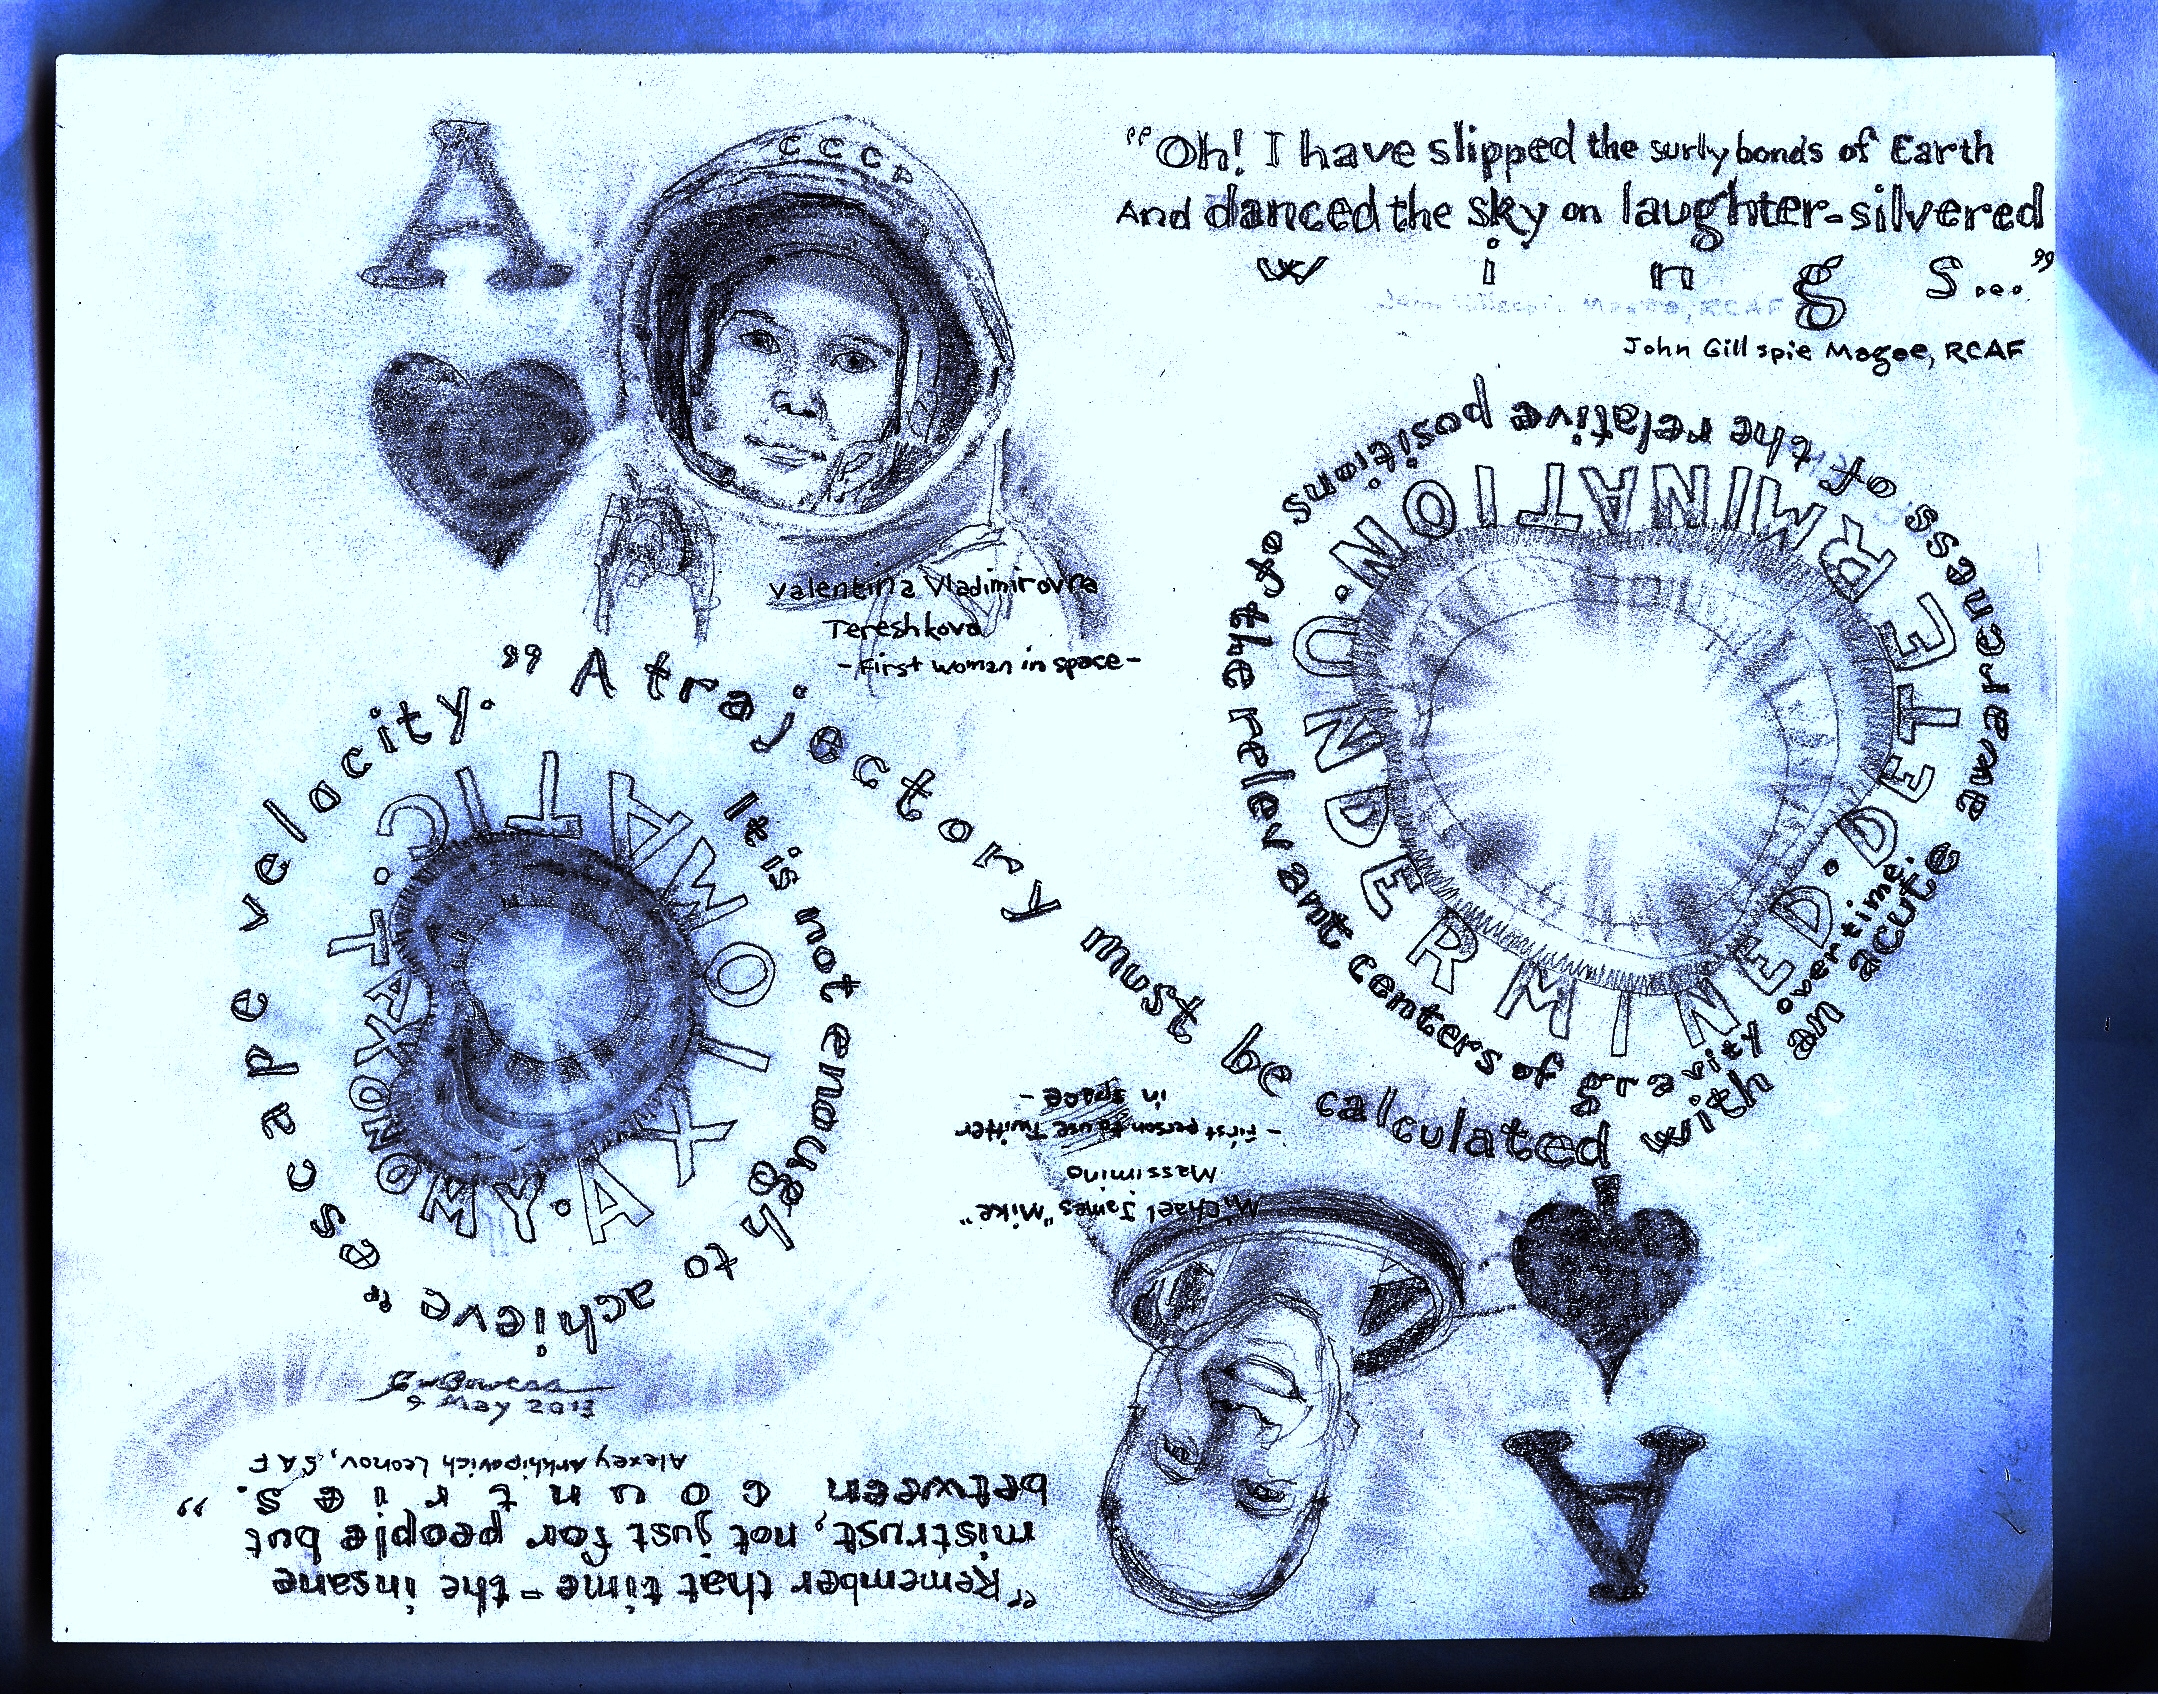 A
CCCP
“Oh! I have slipped the surly bonds of Earth
And danced the sky on laughter-silvered
wings...”
John Gillspie Magee, RCAF
Valentina Vladimirovna
Tereshkova
- First woman in space -
It is not enough to achieve “escape velocity.” A trajectory must be calculated with an acute awareness of the relative positions of the relevant centers of gravity over time.
AXIOMATIC.TAXONOMY.
UNDERMINED.DETERMINATION.
Michael James "Mike"
Massimino
- First person to use Twitter
in space -
A
9 May 2013
“Remember that time - the insane
mistrust, not just for people but
between countries.”
Alexey Arkhipovich Leonov, SAF